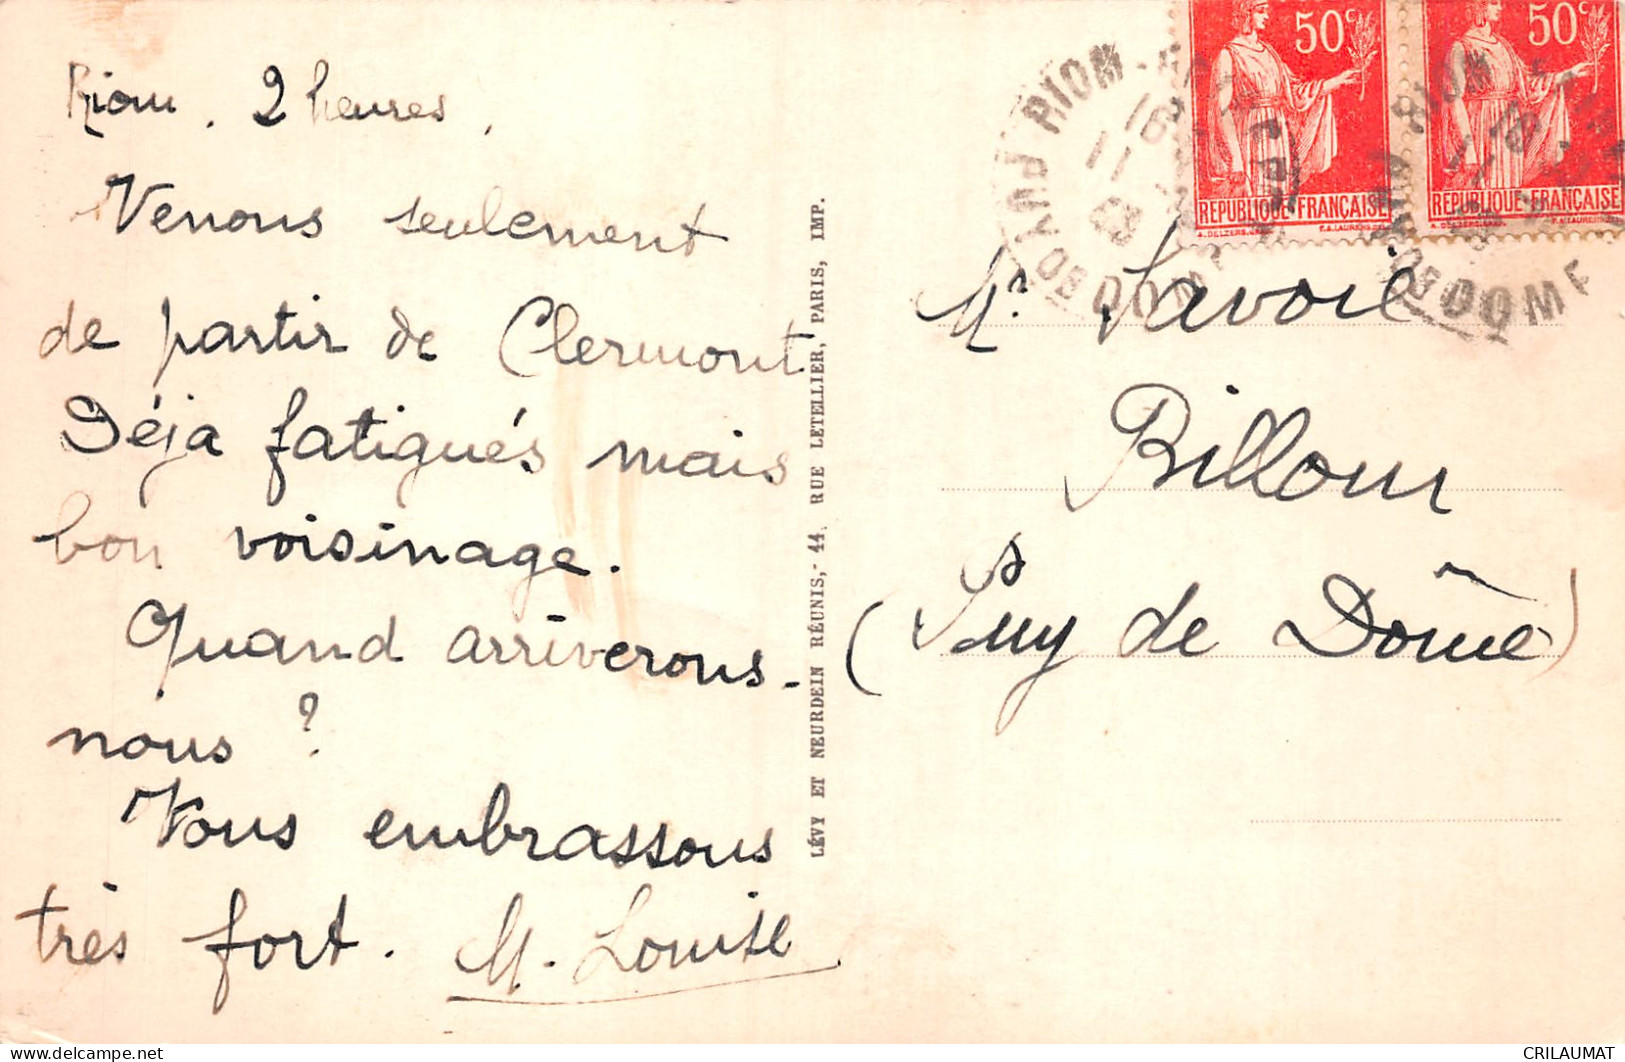 Riom. 2 heures.
Venons seulement
de partir de Clermont
Déjà fatigués mais
bon voisinage.
Quand arriverons-
nous ?
Vous embrassons
très fort. M. Louise
LÉVY ET NEURDEIN RÉUNIS, - 44, RUE LETELLIER, PARIS, IMP.
50c
RÉPUBLIQUE FRANÇAISE
50c
RÉPUBLIQUE FRANÇAISE
RIOM
16
11
PUY DE DOME
RIOM
16
11
PUY DE DOME
Mr. Savoie
Billom
(Puy de Dôme)
CRILAUMAT